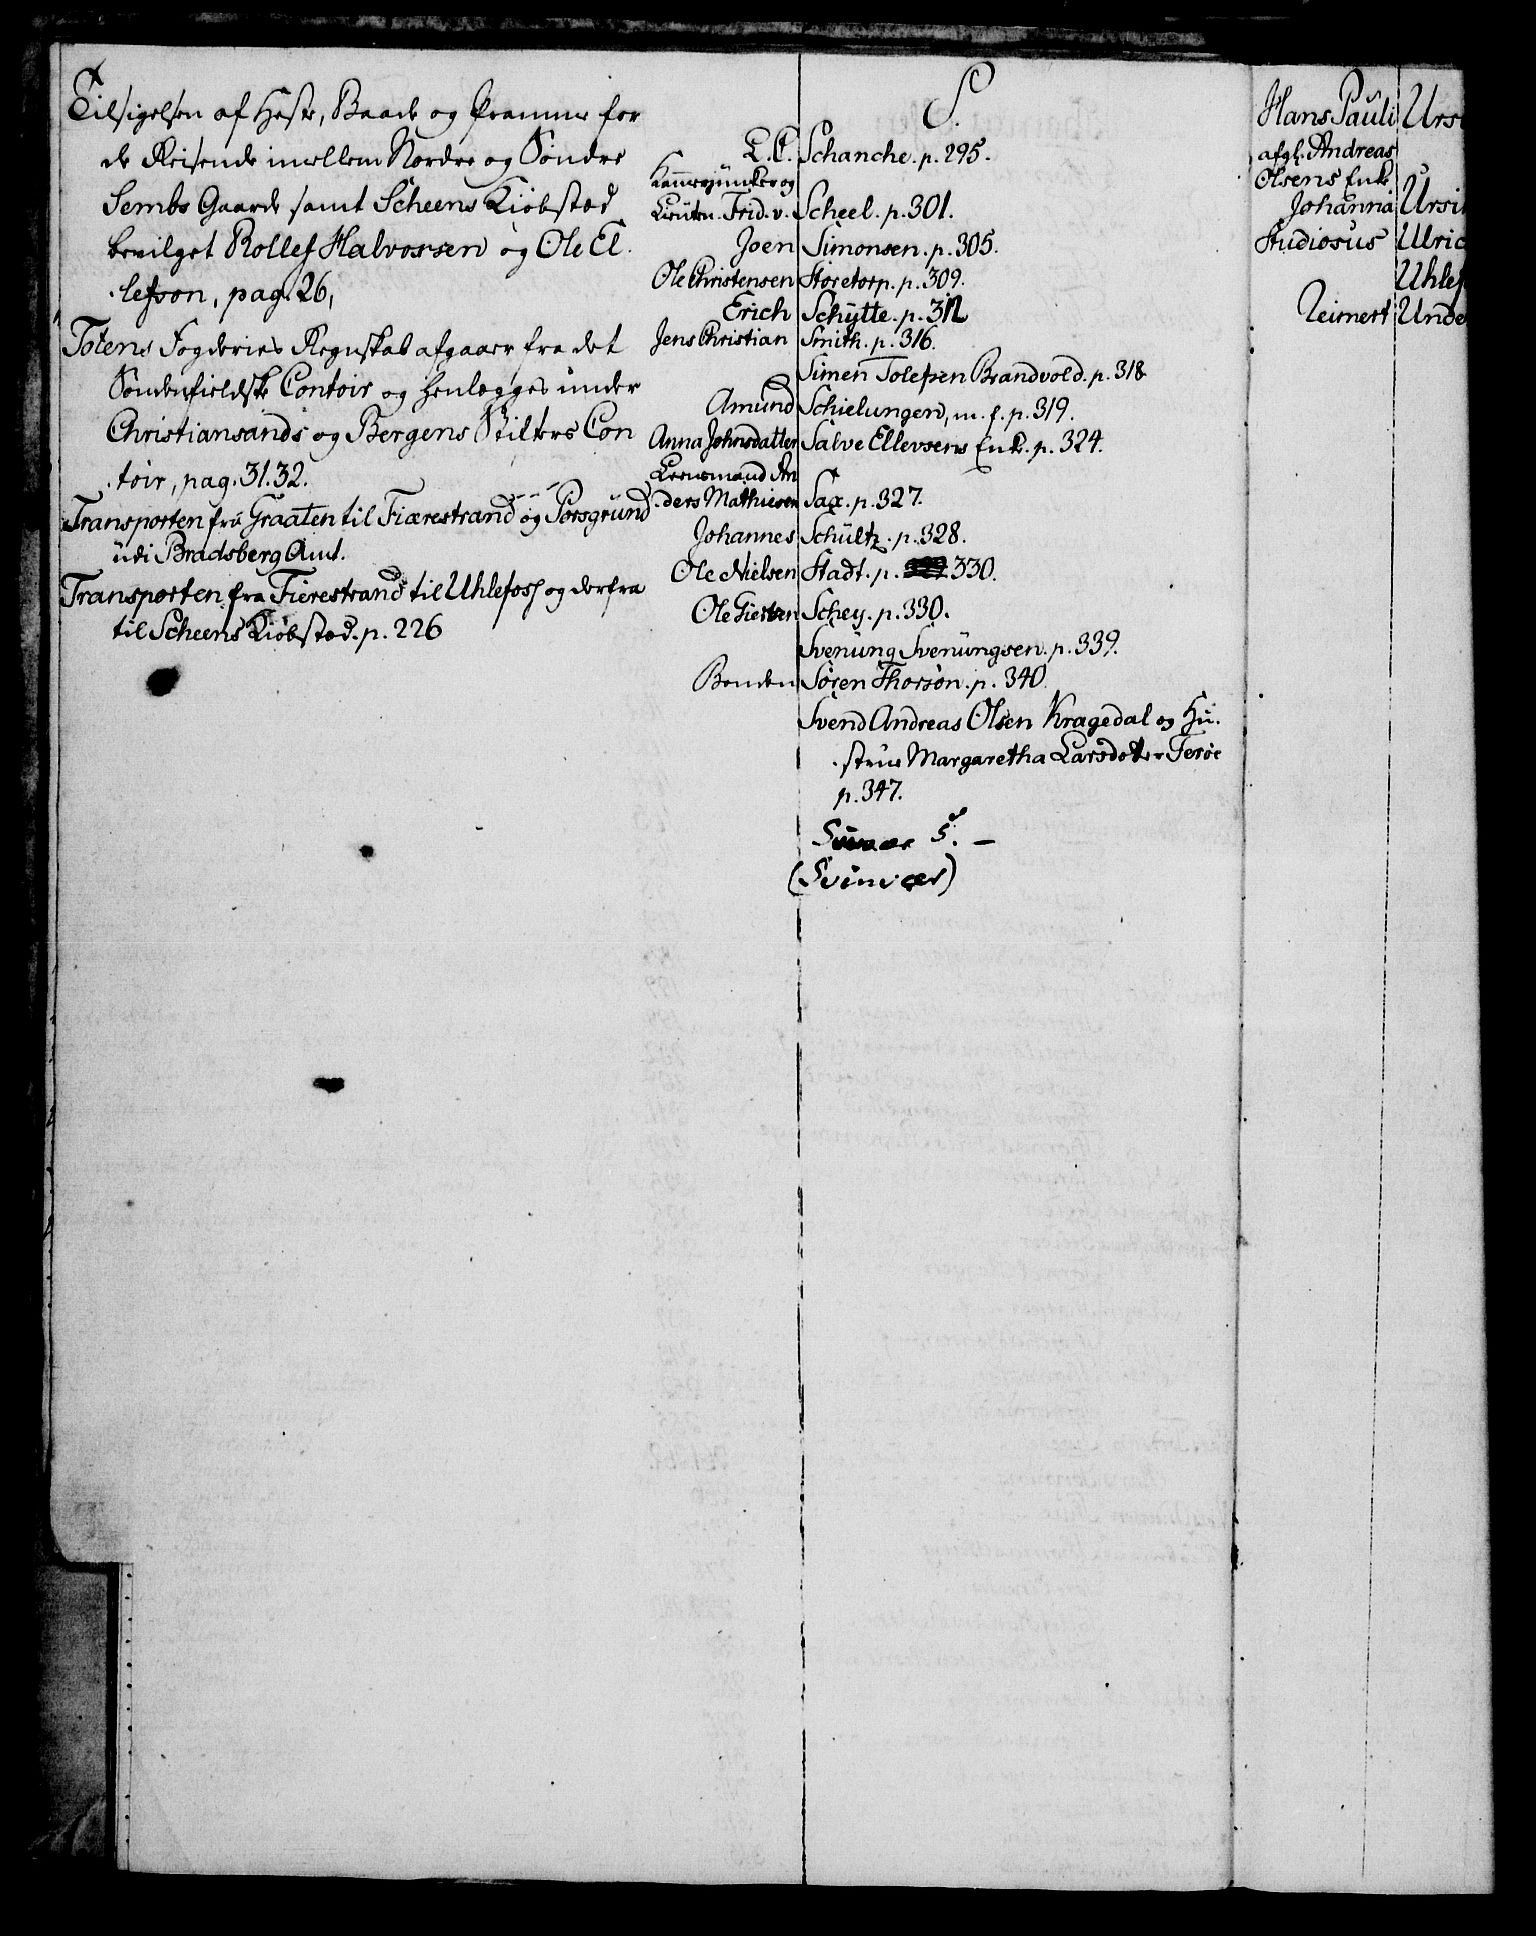 Tilsigelsen af Heste, Baade og Pramme for
de Reisende imellem Nordre og Söndre
Sembs Gaarde samt Scheens Kiöbstæd
bevilget Rollef Halvorsen og Ole El
lefson, pag. 26,
Totens Fogderies Regnskab afgaaer fra det
Söndenfieldske Contoir og henlægges under
Christiansands og Bergens Stifters Con
toir, pag. 31.32.
Transporten fra Graaten til Fiærestrand og Porsgrund
udi Bradsberg Amt.
Transporten fra Fierestrand til Uhlefoss og derfra
til Scheens Kiöbstæd. p. 226
S.
L. C. Schanche. p. 295.
Kammerjunker og
Lieutn. Frid. v. Scheel. p. 301.
Joen Simonsen. p. 305.
Ole Christensen Storetorp. p. 309.
Erich Schytte. p. 312
Jens Christian Smith. p. 316.
Simen Tolefsen Brandvold. p. 318
Amund Schielungen, m. f. p. 319.
Anna Johnsdatter Salve Ellevsens Enke. p. 324.
Lensmand An
ders Mathiesen Sax. p. 327.
Johannes Schültz. p. 328.
Ole Nielsen Stadt. p. 330.
Ole Giertsen Schey. p. 330.
Svenüng Svenüngsen. p. 339.
Bonden Sören Thorsön. p. 340
Svend Andreas Olsen Kragedal og Hu
strue Margaretha Larsdatter Teröe
p. 347.
5.
(Svinvær)
Hans Pauli Ursi
afgl. Andreas
Olsens Enke
Johanna Ursi
Studiosus Ulric
Uhlef
Reimert Unde